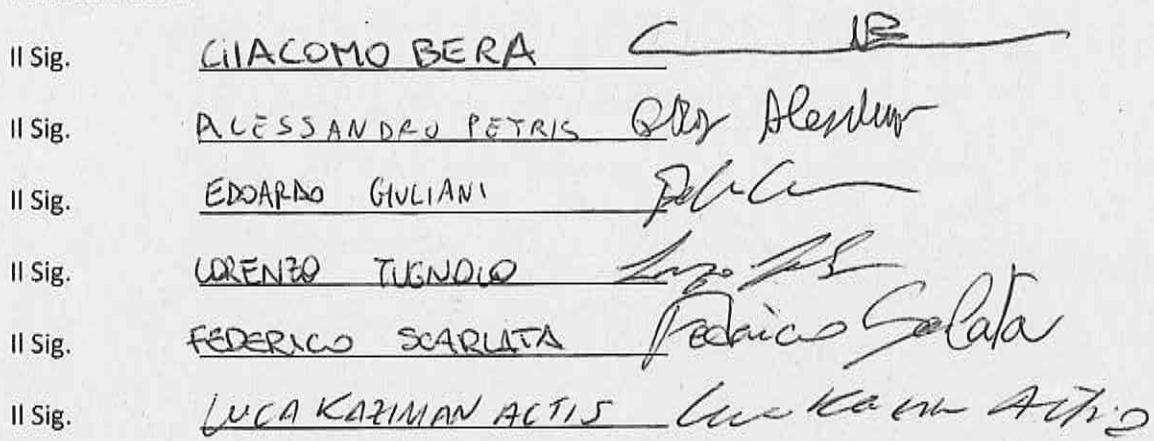 Il Sig. GIACOMO BERA
Il Sig. ALESSANDRO PETRIS
Il Sig. EDOARDO GIULIANI
Il Sig. LORENZO TUGNOLO
Il Sig. FEDERICO SCARLATA Federico Scarlata
Il Sig. LUCA KAZIMAN ACTIS Luca Kaziman Actis